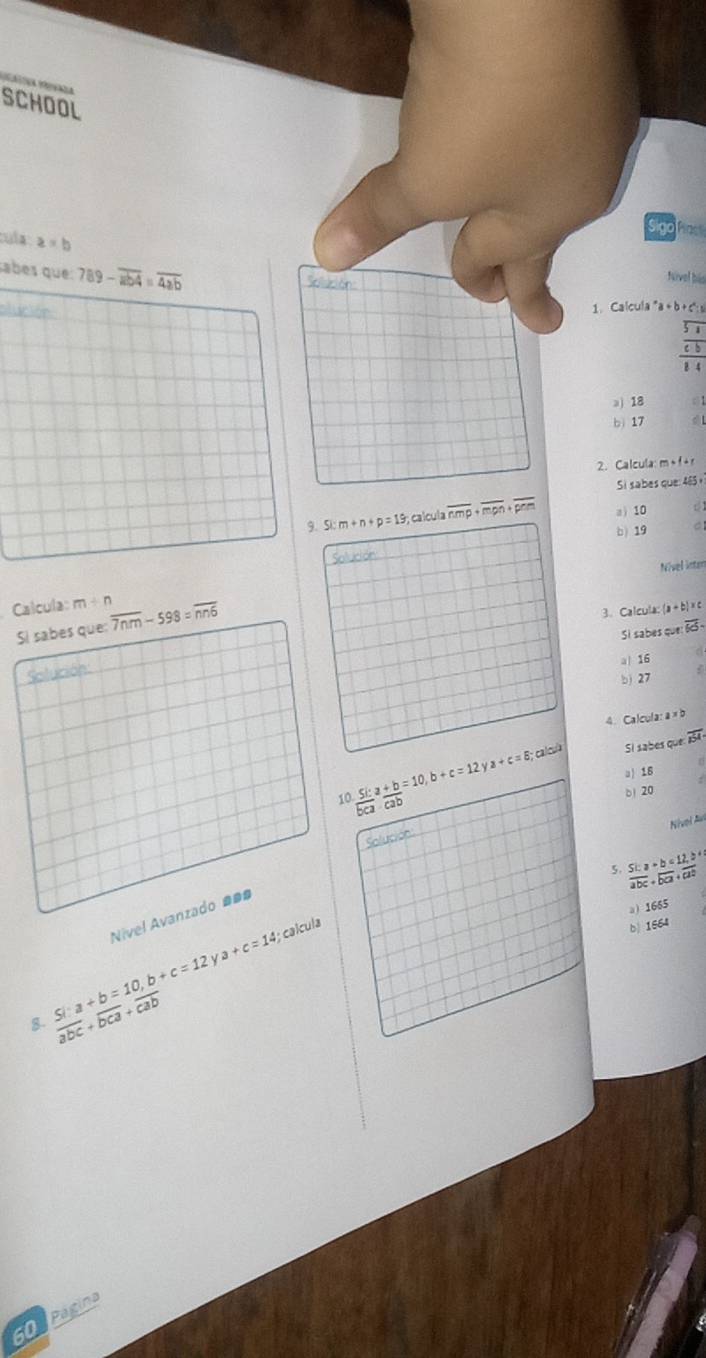 SCHOOL
a × b
abes que: 789 – ab4 = 4ab
Calcula: m ÷ n
Si sabes que: 7nm – 598 = nn6
Solución:
Nivel Avanzado
8. Si: a + b = 10, b + c = 12 y a + c = 14; calcula
abc + bca + cab
60 Pagina
Solución:
9. Si: m + n + p = 19; calcula nmp + mpn + pnm
Solución:
10. Si: a + b = 10, b + c = 12 y a + c = 8; calcula
bca . cab
Solución:
Sigo
Nivel
1. Calcula "a + b + c":
5 a
c b
8 4
a) 18
b) 17
2. Calcula: m + f + r
Si sabes que: 465 +
a) 10
b) 19
Nivel
3. Calcula: (a + b) × c
Si sabes que: 6c5 -
a) 16
b) 27
4. Calcula: a × b
Si sabes que: a54 -
a) 18
b) 20
Nivel
5. Si: a + b = 12, b +
abc + bca + cab
a) 1665
b) 1664